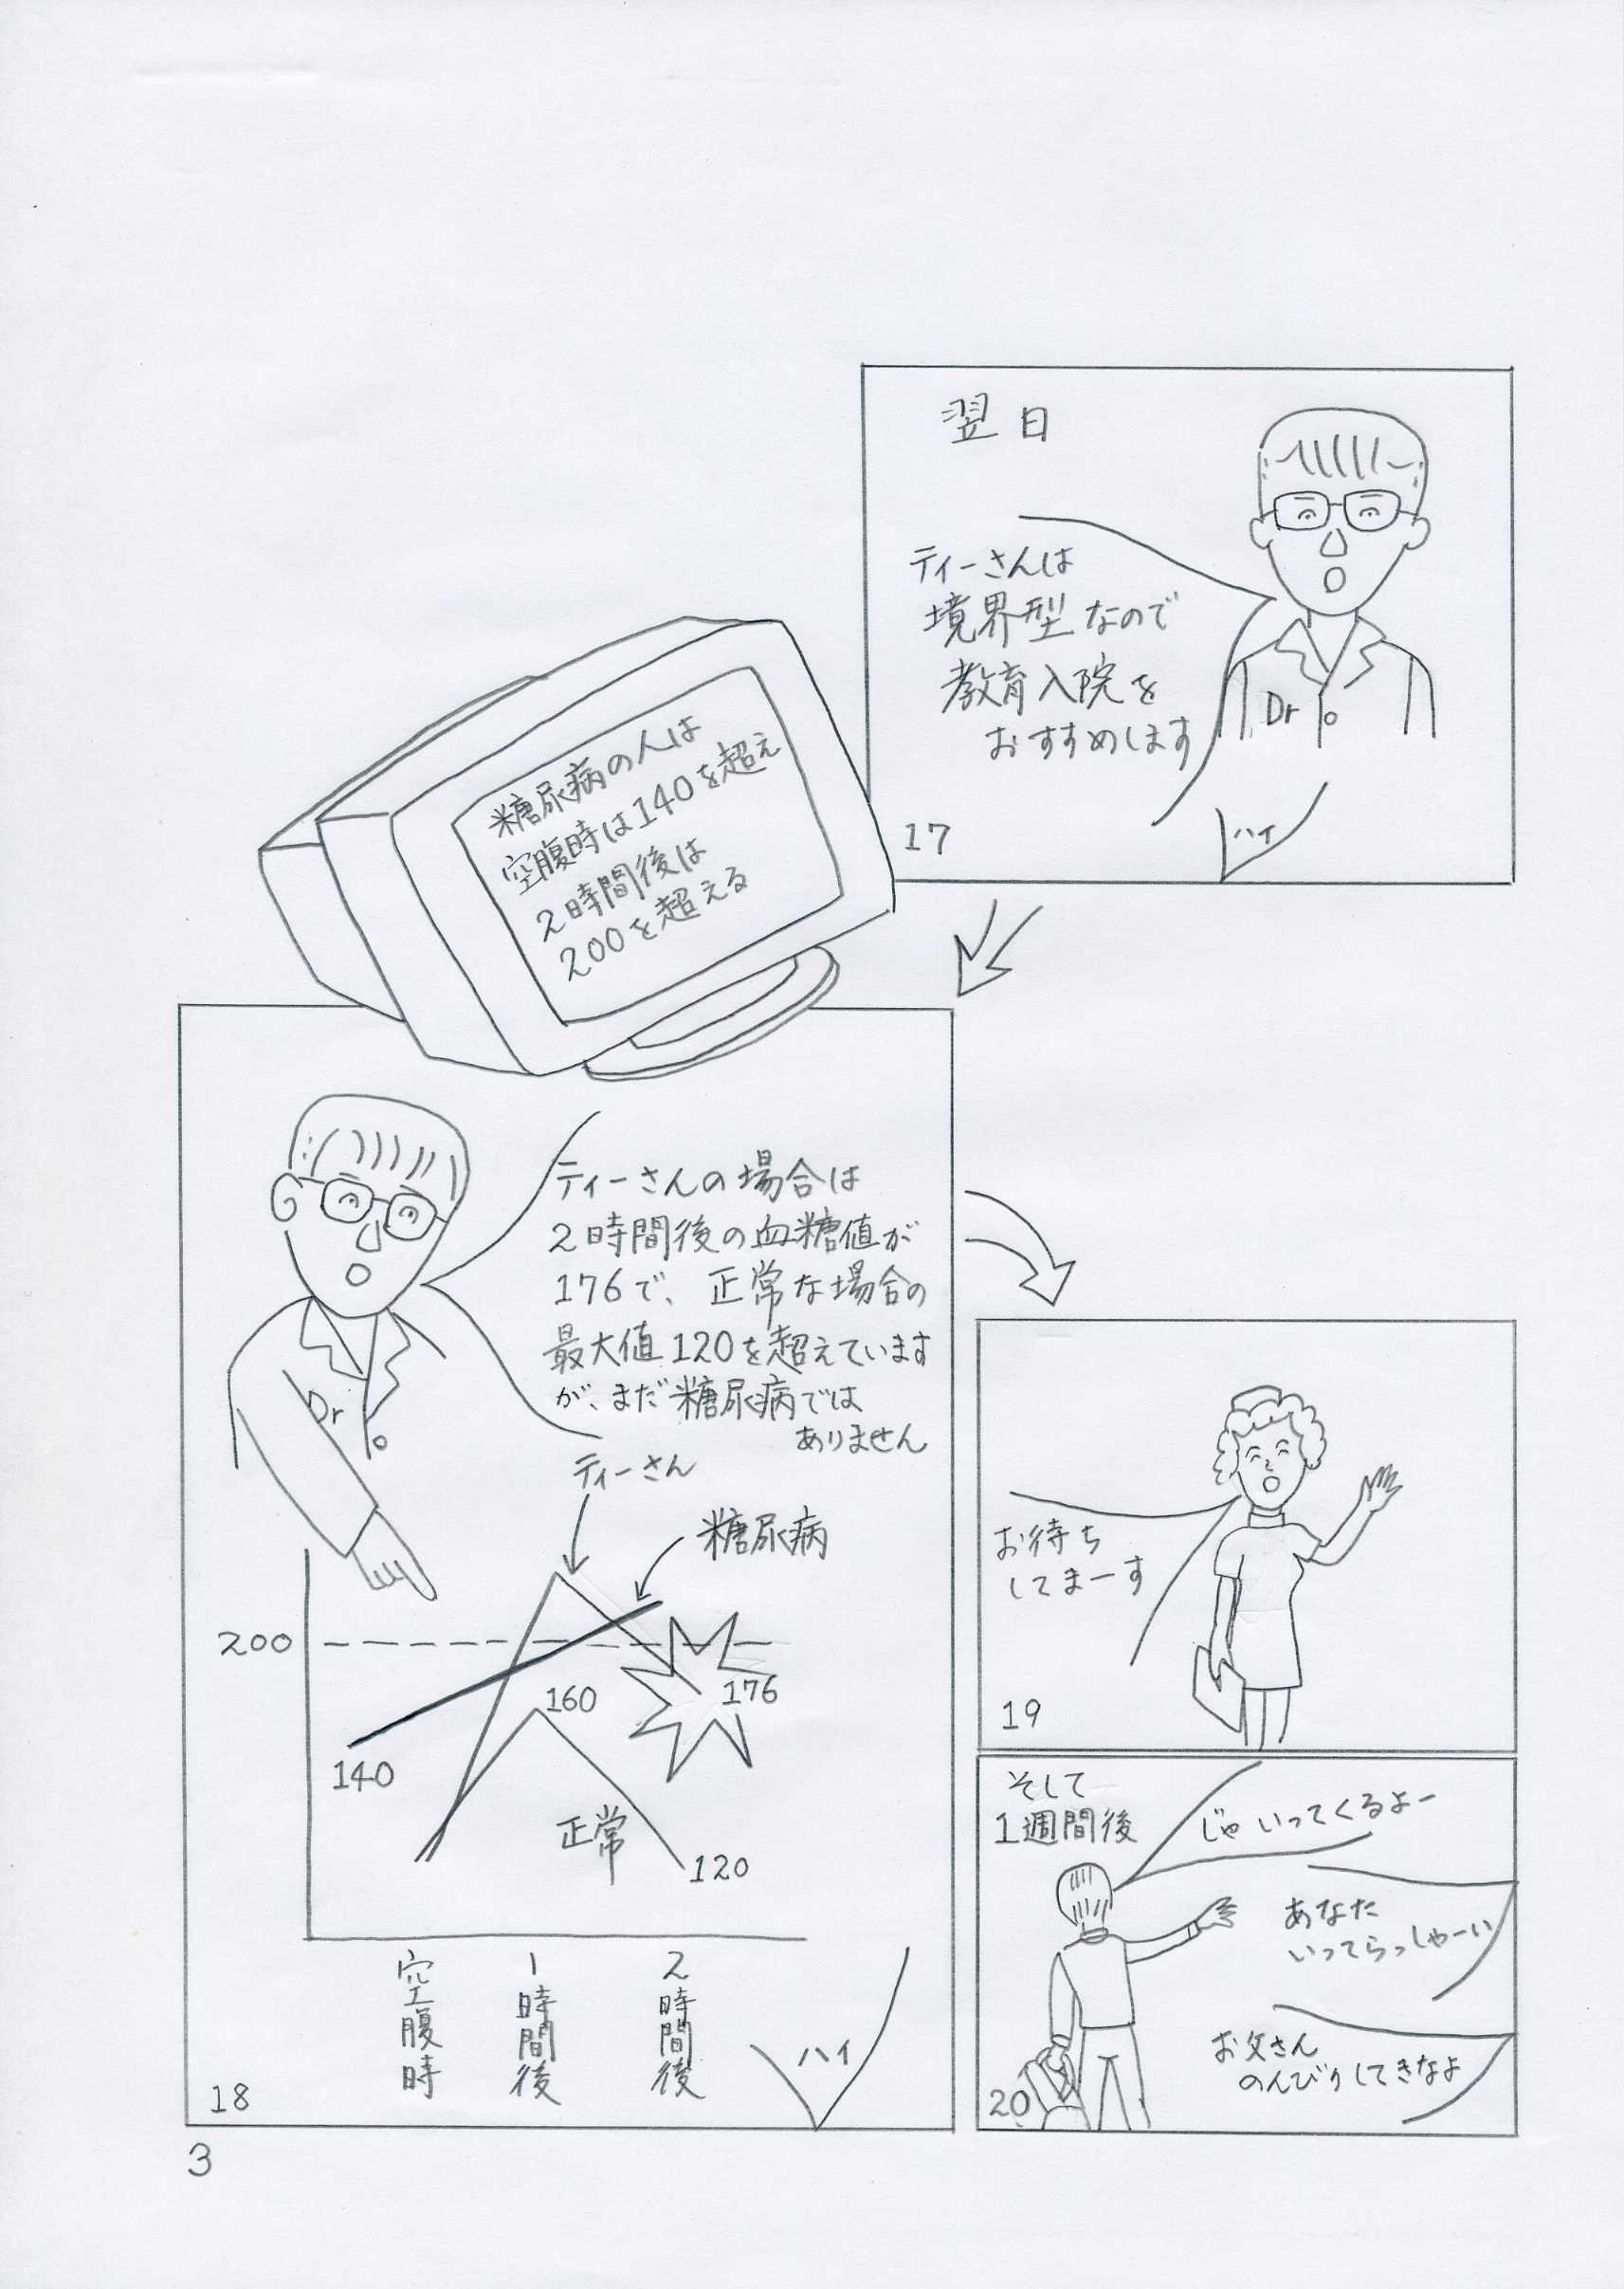 翌日
ティーさんは
境界型なので
教育入院を
おすすめします
Dr
ハイ
17
糖尿病の人は
空腹時は140を超え
2時間後は
200を超える
ティーさんの場合は
2時間後の血糖値が
176で、正常な場合の
最大値120を超えています
が、まだ糖尿病では
ありません
Dr
ティーさん
糖尿病
200
160
176
140
正常
120
空腹時
1時間後
2時間後
ハイ
18
お待ち
してまーす
19
そして
1週間後
じゃいってくるよー
あなた
いってらっしゃーい
お父さん
のんびりしてきなよ
20
3